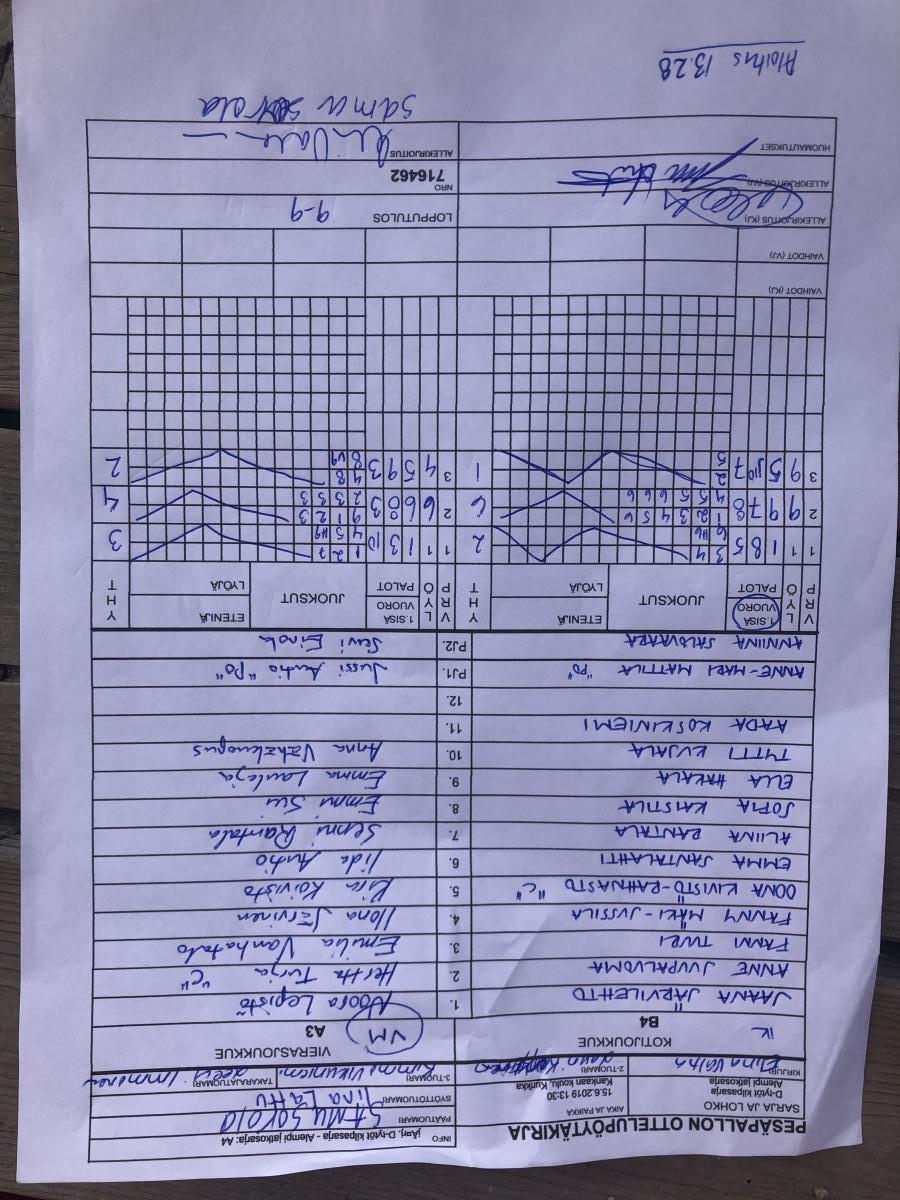 PESÄPALLON OTTELUPÖYTÄKIRJA
INFO
järj. D-tytöt kilpasarja - Alempi jatkosarja: A4
SARJA JA LOHKO
D-tytöt kilpasarja
Alempi jatkosarja
AIKA JA PAIKKA
15.6.2019 13:30
Kankaan koulu, Kurikka
PÄÄTUOMARI
SYÖTTÖTUOMARI
Tiina Lattu
KIRJURI
Elina
2-TUOMARI
3-TUOMARI
Kimmo
TAKARAJATUOMARI
Imminen
KOTIJOUKKUE
B4
IK
VIERASJOUKKUE
A3
VM
JAANA JÄRVILEHTO 1. Noora Lepistö
ANNE JUUPALUOMA 2. Hertta Turja "C"
FANNI TURJ 3. Emilia Vanhatalo
FANNY MÄKI-JUSSILA 4. Ilona Järvinen
OONA KIVISTÖ-RAHNASTO "C" 5. Riia Koivisto
EMMA JANTALAHTI 6. Iida Antio
ALIINA RANTALA 7. Senni Rantala
SOFIA KAISTILA 8. Emmi Sui
ELLA HAKALA 9. Emma Lauleja
TYTTI KUJALA 10. Anna
AADA KOSKINIEMI 11.
12.
ANNE-MARI MATTILA "PO" PJ1. Jussi Antio "PO"
ANNIINA SALOVAARA PJ2. Suvi Einola
VRP LYÖ 1.SISÄ VUORO PALOT JUOKSUT ETENIJÄ LYÖJÄ YHT
VRP LYÖ 1.SISÄ VUORO PALOT JUOKSUT ETENIJÄ LYÖJÄ YHT
1 1 1 8 5 3 4 6 H6 2
1 1 1 3 10 1 2 7 4 5 H9 3
2 9 9 7 8 1 2 3 4 5 6 4 5 5 6 6 6 6
2 6 6 8 3 9 1 2 3 2 3 3 3 4
3 9 5 J10 7 2 5 1
3 4 5 9 3 4 8 8 V9 2
VAIHDOT (KJ)
VAIHDOT (VJ)
ALLEKIRJOITUS (KJ)
LOPPUTULOS
9-9
ALLEKIRJOITUS (VJ)
NRO
716462
HUOMAUTUKSET
ALLEKIRJOITUS
Aloitus 13.28